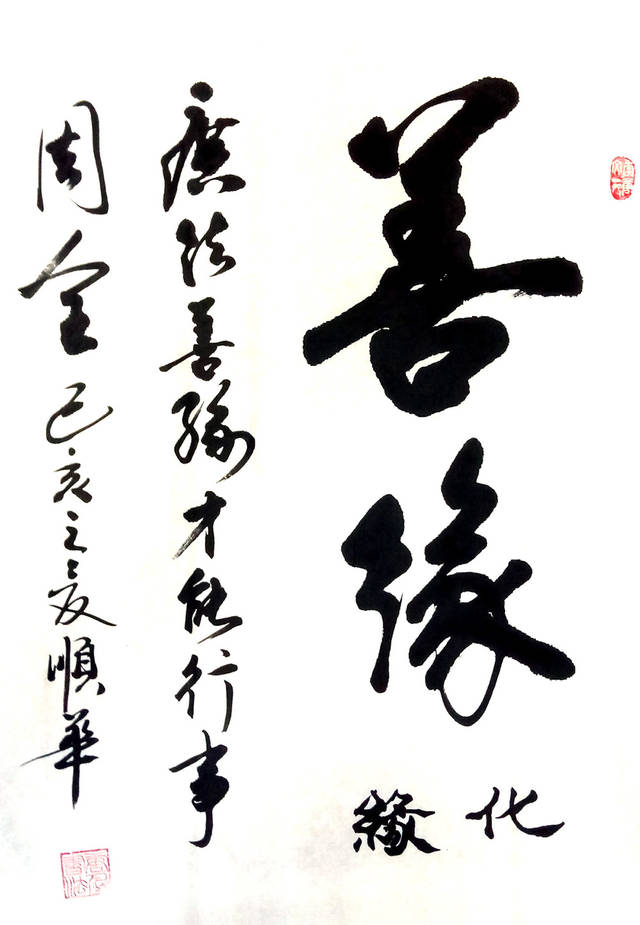 善緣
化緣
廣結善緣才能行事
周全己亥之夏順華